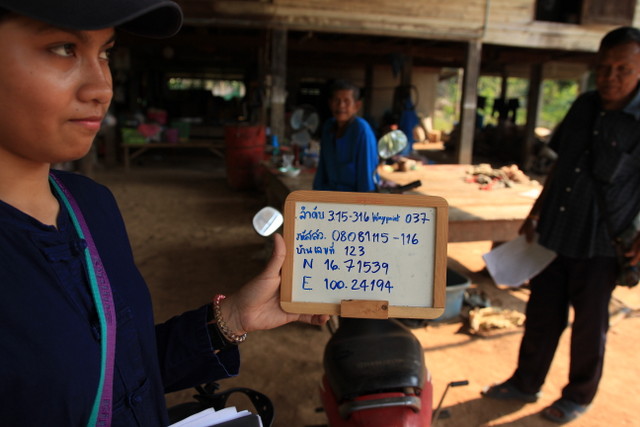 ลำดับ 315-316 Waypoint 037
รหัสสว. 08081115-116
บ้านเลขที่ 123
N 16.71539
E 100.24194